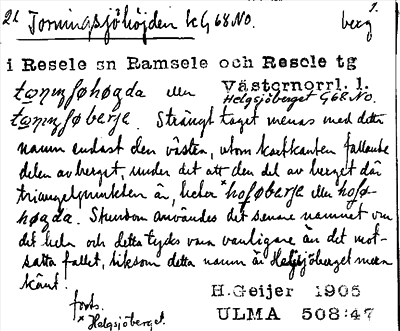 21 Torningsjöhöjden k G 68 NO. berg 1.
i Resele sn Ramsele och Resele tg
Västernorrl. l.
Helgsjöberget G68 NO.
høgda eller
Strängt taget menas med detta
namn endast den västra, utom kartkanten fallande
delen av berget, under det att den del av berget där
triangelpunkten är, heter eller
høgda. Stundom användes det senare namnet om
det hela och detta tydes vara vanligare än det mot-
satta fallet, liksom detta namn är Helgsjöberget mera
känt.
forts.
x Helgsjöberget.
H.Geijer 1905
ULMA 508:47